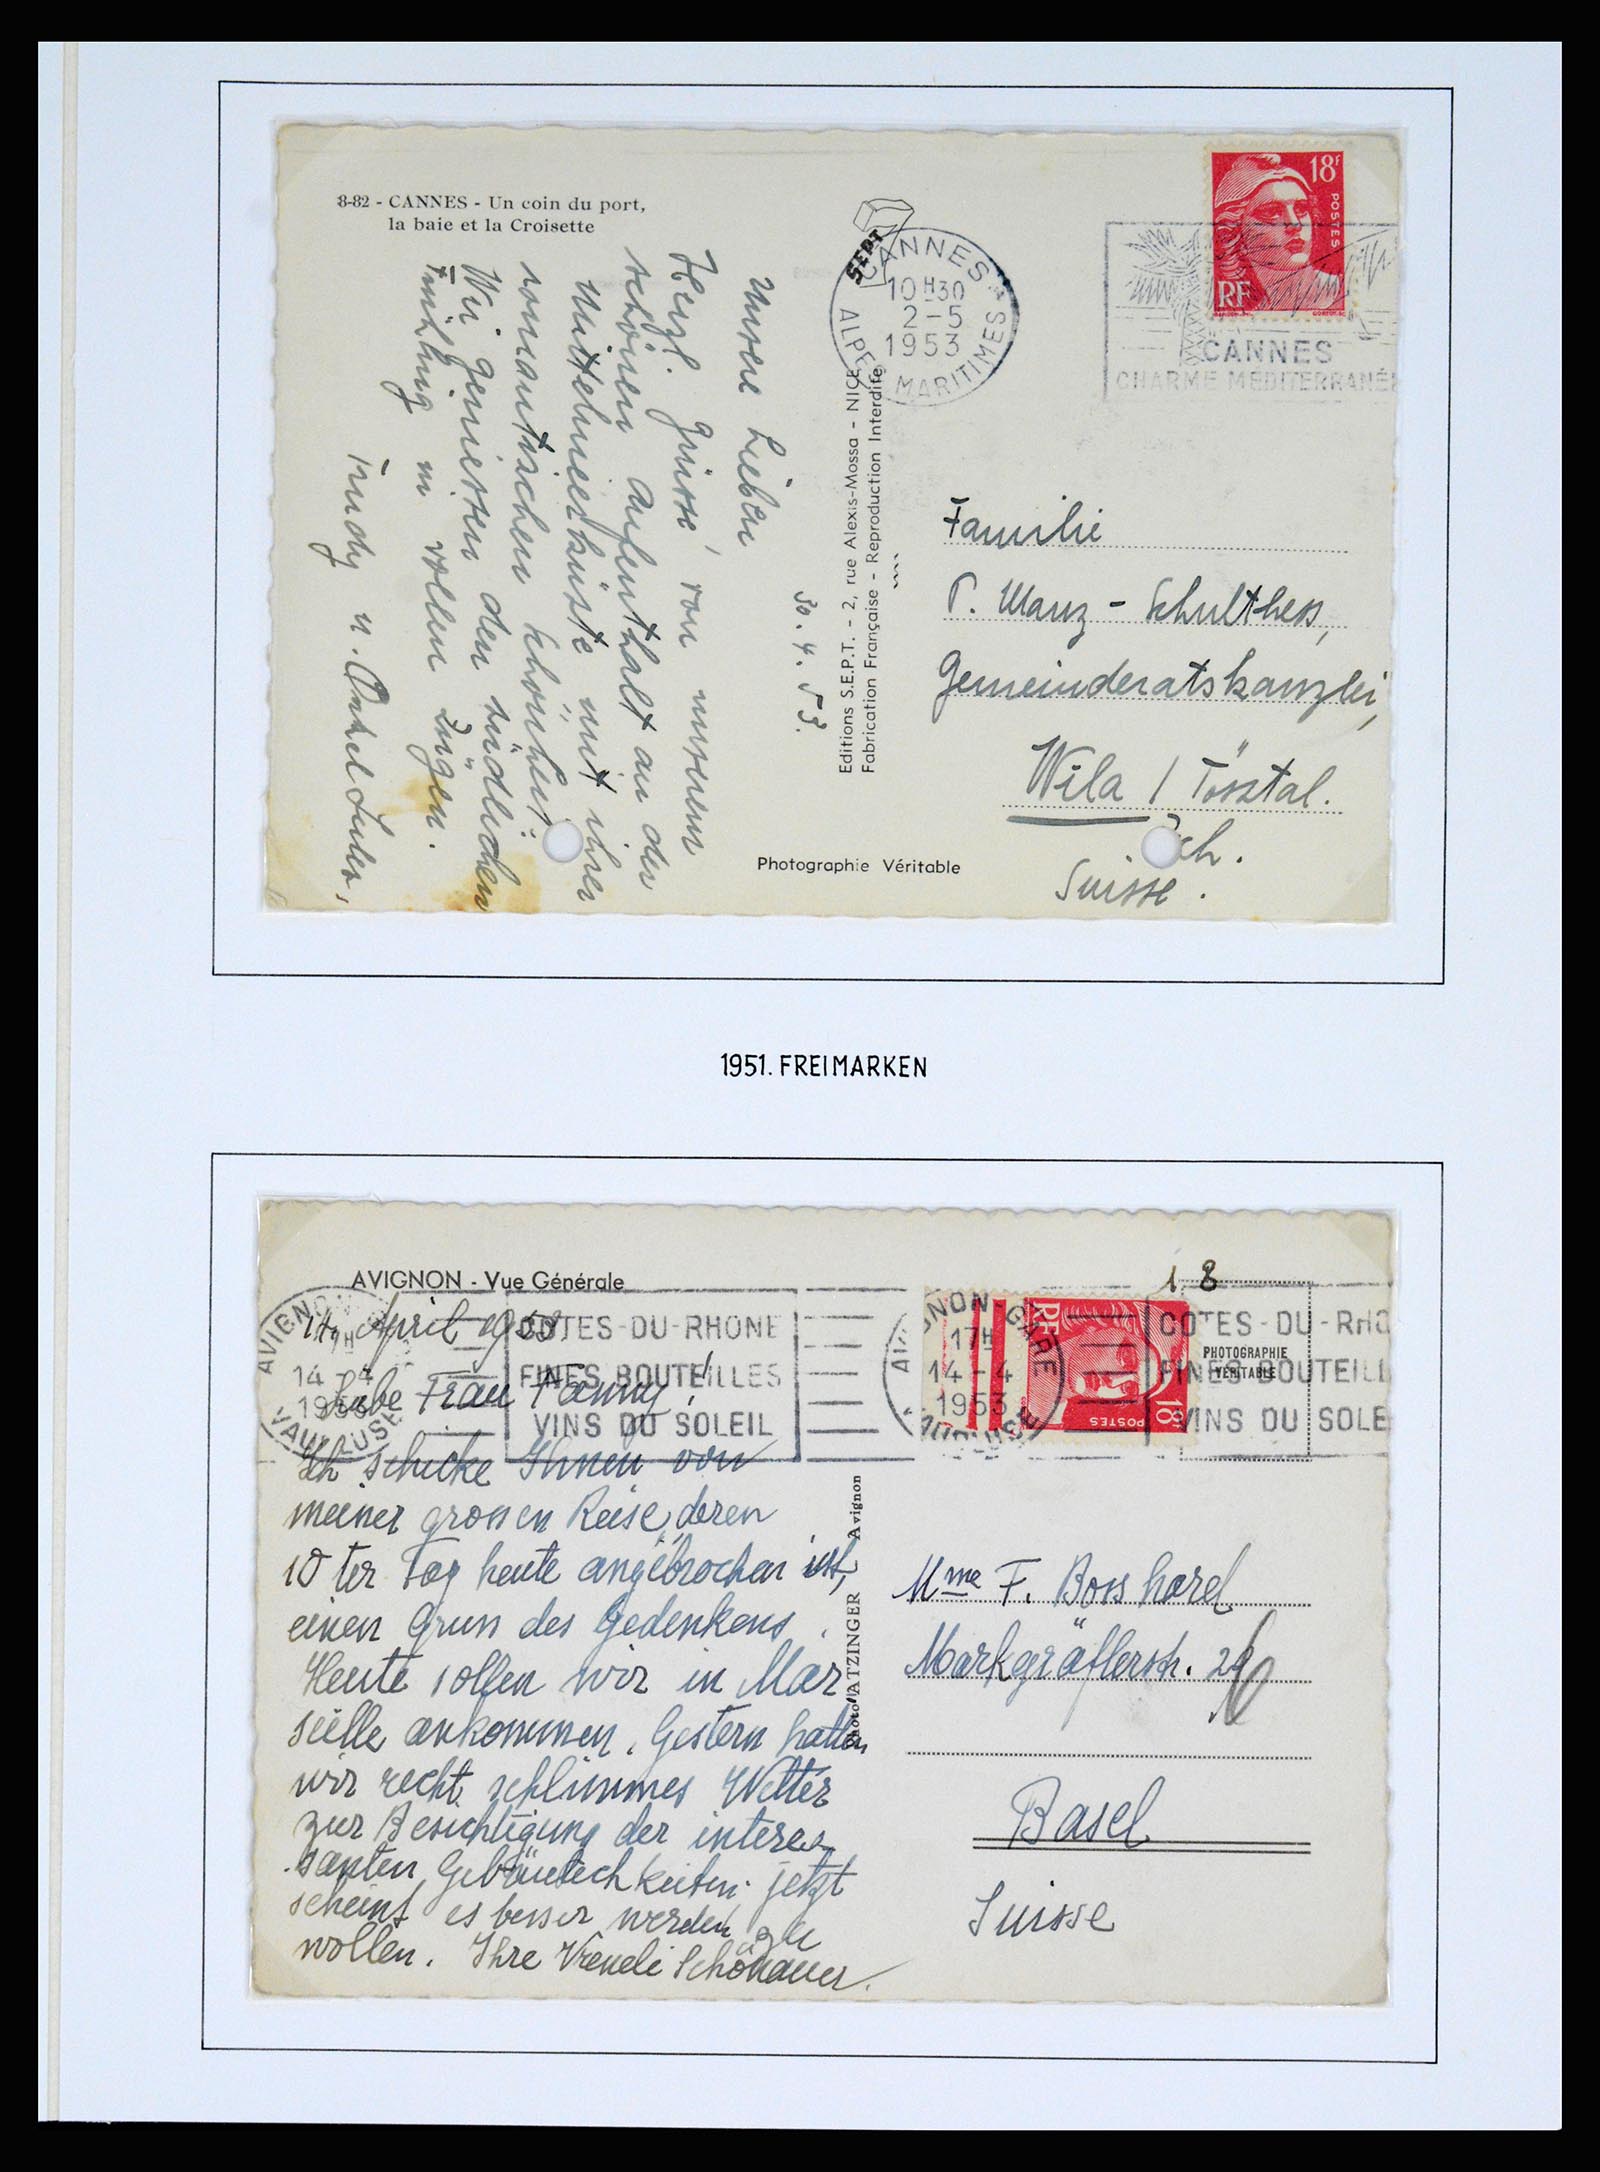 8-82 - CANNES - Un coin du port,
la baie et la Croisette
Unsere Lieben
Herzl. Grüsse, von unserem
schönen Aufenthalt an der
Mittelmeerküste mit ihrer
romantischen Schönheit.
Wir geniessen den südlichen
Frühling in vollen Zügen.
Trudy u. Onkel
30. 4. 53.
Editions S.E.P.T. - 2, rue Alexis-Mossa - NICE
Fabrication Française - Reproduction Interdite
SEPT
CANNES A
10H30
2-5
1953
ALPES MARITIMES
18f
POSTES
RF
CANNES
CHARME MÉDITERRANÉ
Familie
P. Manz - Schulthess,
Gemeinderatskanzlei,
Wila / Tösstal.
ch.
Suisse.
Photographie Véritable
1951. FREIMARKEN
AVIGNON - Vue Générale
14. April 1953.
Liebe Frau Fanny!
Ich schicke Ihnen von
meiner grossen Reise, deren
10ter Tag heute angebrochen ist,
einen Gruss des Gedenkens.
Heute sollen wir in Mar
seille ankommen. Gestern hatten
wir recht schlimmes Wetter
zur Besichtigung der interes
santen jetzt
scheint es besser werden zu
wollen. Ihre Vreneli Schönauer.
AVIGNON
14-4
1953
VAUCLUSE
COTES-DU-RHONE
FINES BOUTEILLES
VINS DU SOLEIL
AVIGNON-GARE
17H
14-4
1953
VAUCLUSE
RF
POSTES
18
1 8
PHOTOGRAPHIE
VÉRITABLE
COTES-DU-RHO
FINES BOUTEILL
VINS DU SOLE
Photo ATZINGER Avignon
Mme F. Bosshard
Markgräflerstr.
Basel
Suisse